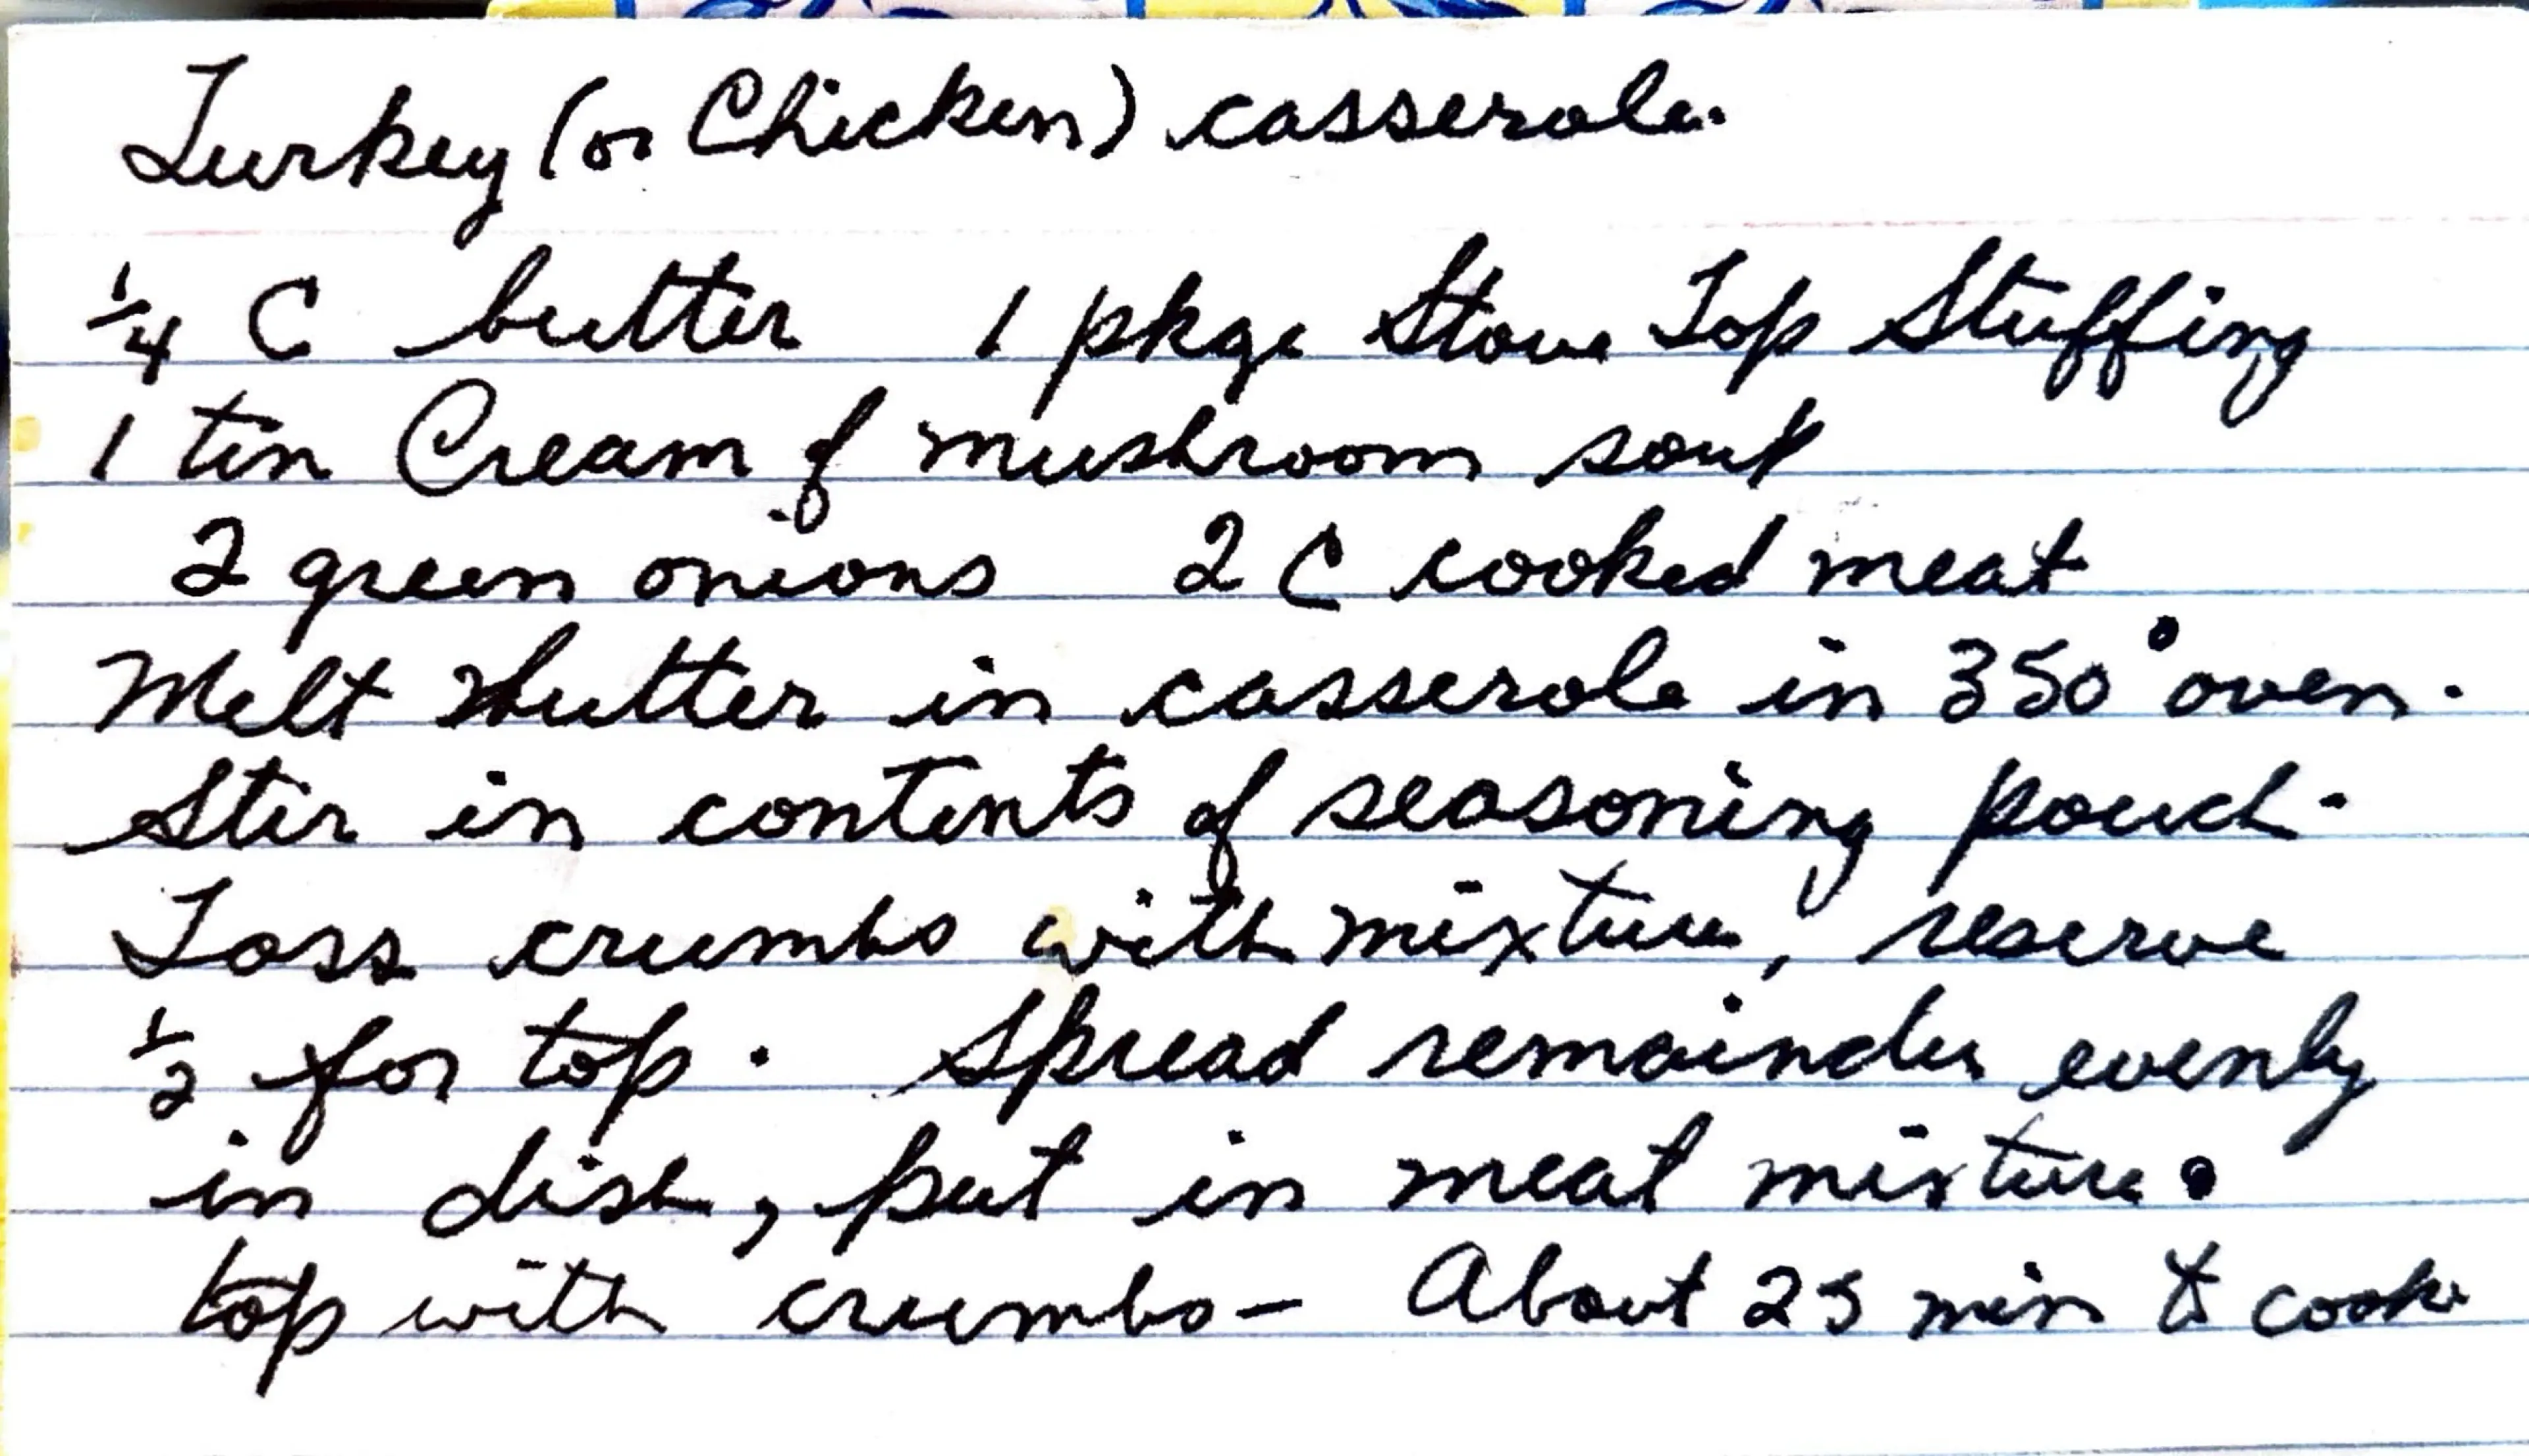 Turkey (or Chicken) casserole.
1/4 C butter 1 pkge Stove Top Stuffing
1 tin Cream of mushroom soup
2 green onions 2 C cooked meat
Melt butter in casserole in 350° oven.
Stir in contents of seasoning pouch.
Toss crumbs with mixture, reserve
1/2 for top. Spread remainder evenly
in dish, put in meat mixture.
top with crumbs - About 25 min to cook